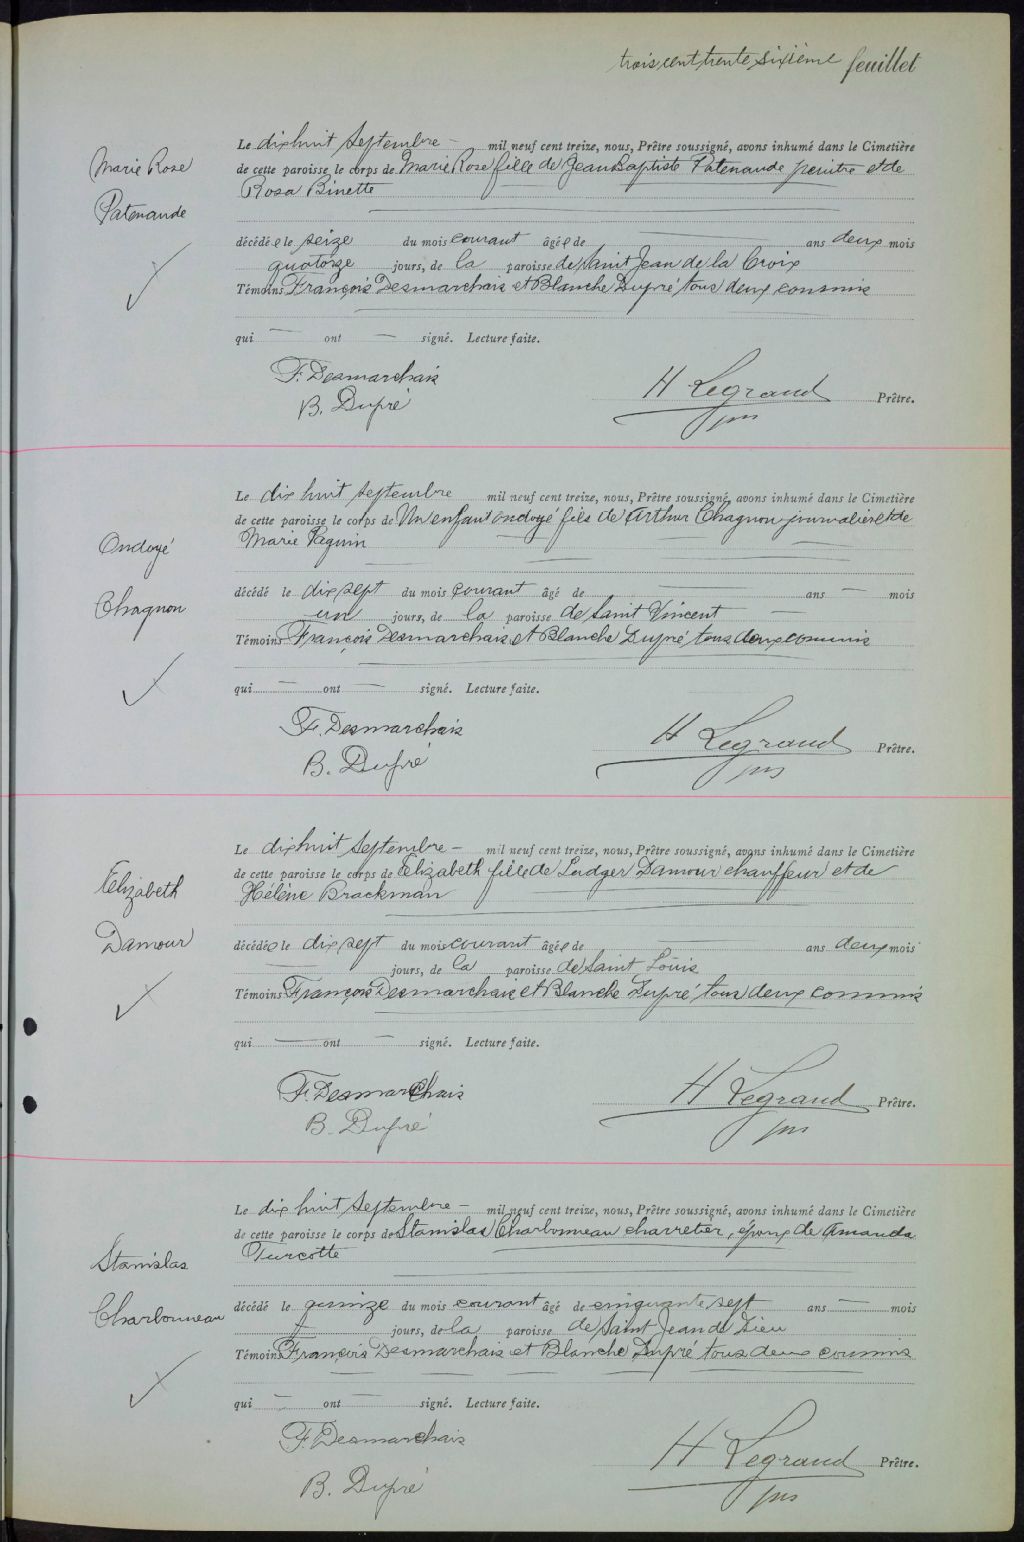 trois cent trente sixième feuillet
Marie Rose
Patenaude
Le dix huit Septembre — mil neuf cent treize, nous, Prêtre soussigné, avons inhumé dans le Cimetière
de cette paroisse le corps de Marie Rose fille de Jean Baptiste Patenaude peintre et de
Rosa Binette
décédée le seize du mois courant âgée de — ans deux mois
quatorze jours, de la paroisse de Saint Jean de la Croix
Témoins François Desmarchais et Blanche Dupré tous deux commis
qui — ont — signé. Lecture faite.
F. Desmarchais
B. Dupré
H Legrand Prêtre.
Ondoyé
Chagnon
Le dix huit septembre mil neuf cent treize, nous, Prêtre soussigné, avons inhumé dans le Cimetière
de cette paroisse le corps de Un enfant ondoyé fils de Arthur Chagnon journalier et de
Marie Paquin
décédé le dix sept du mois courant âgé de — ans — mois
un jours, de la paroisse de Saint Vincent —
Témoins François Desmarchais et Blanche Dupré tous deux commis
qui — ont — signé. Lecture faite.
F. Desmarchais
B. Dupré
H Legrand Prêtre.
Elizabeth
Damour
Le dix huit Septembre — mil neuf cent treize, nous, Prêtre soussigné, avons inhumé dans le Cimetière
de cette paroisse le corps de Elizabeth fille de Ludger Damour chauffeur et de
Hélène Brackman
décédée le dix sept du mois courant âgée de — ans deux mois
— jours, de la paroisse de Saint Louis
Témoins François Desmarchais et Blanche Dupré tous deux commis
qui — ont — signé. Lecture faite.
F. Desmarchais
B. Dupré
H Legrand Prêtre.
Stanislas
Charbonneau
Le dix huit Septembre — mil neuf cent treize, nous, Prêtre soussigné, avons inhumé dans le Cimetière
de cette paroisse le corps de Stanislas Charbonneau charretier, époux de Amanda
Turcotte
décédé le quinze du mois courant âgé de cinquante sept ans — mois
jours, de la paroisse de Saint Jean de Dieu
Témoins François Desmarchais et Blanche Dupré tous deux commis
qui — ont — signé. Lecture faite.
F. Desmarchais
B. Dupré
H Legrand Prêtre.